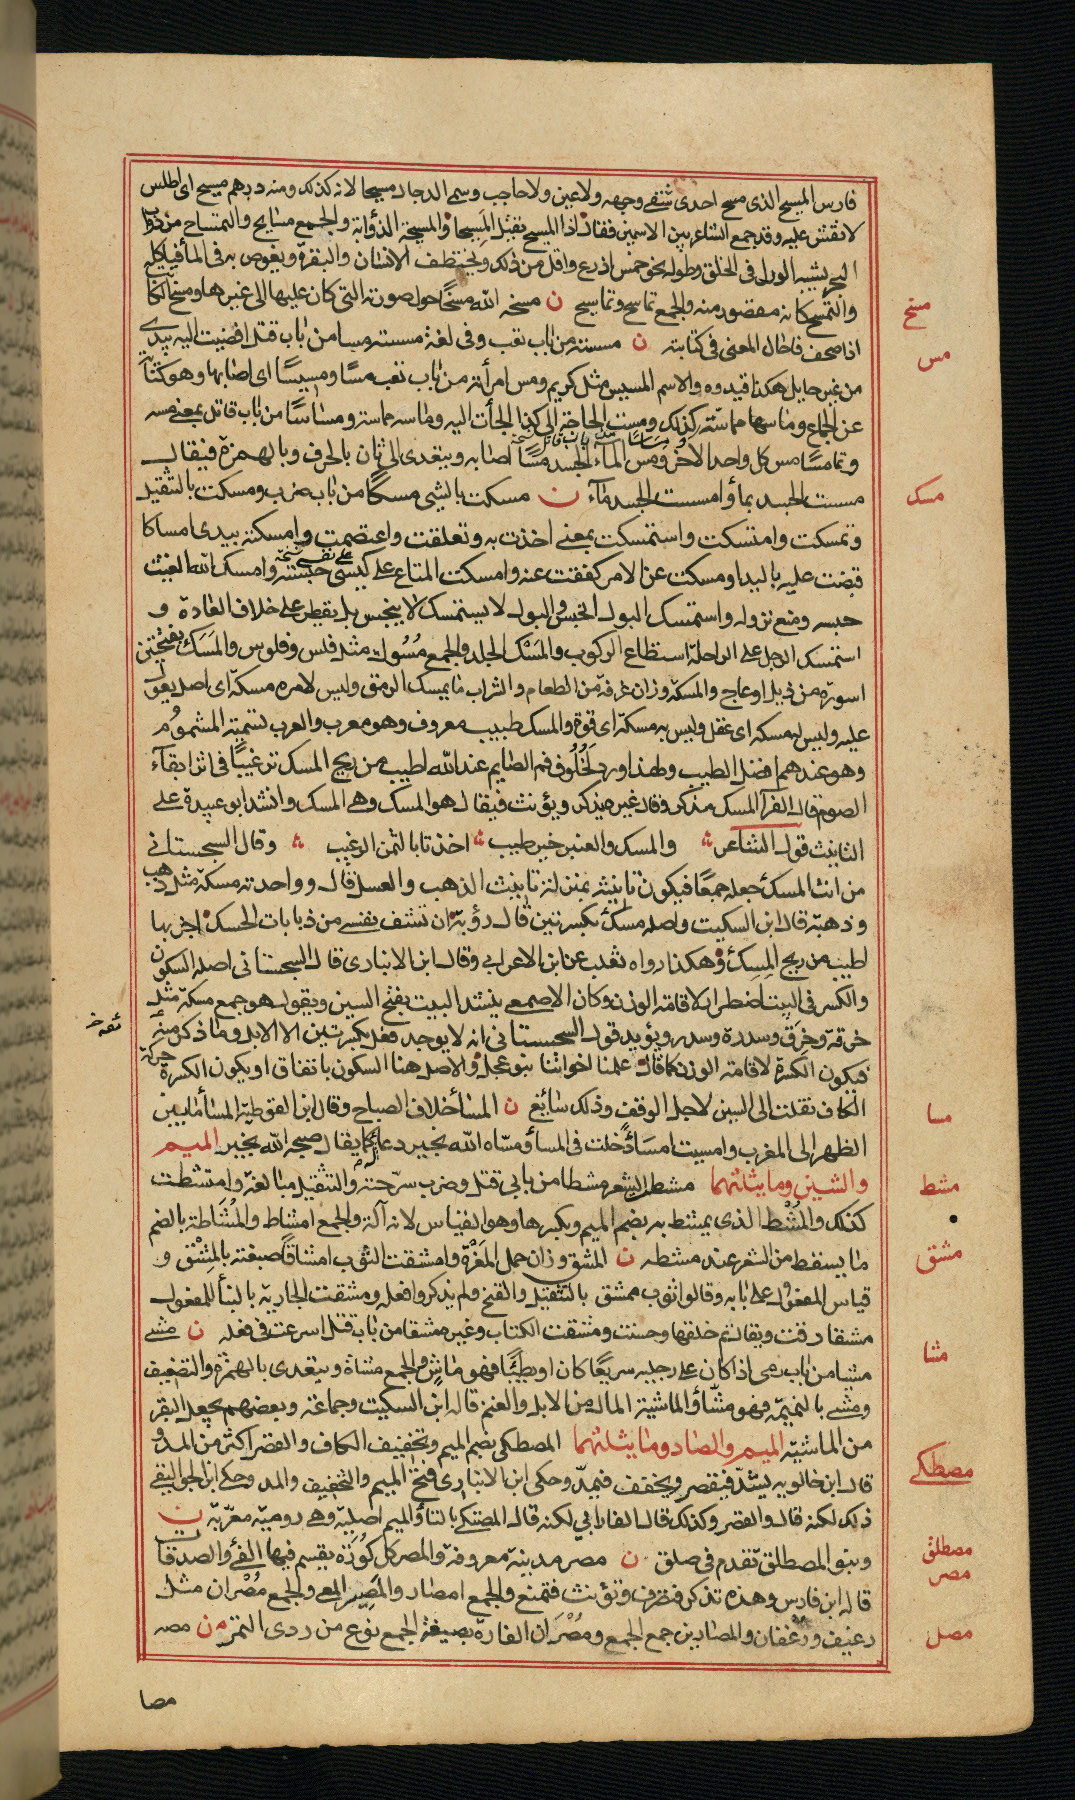 فارس المسيح الذى مسح احدى شقى وجهه ولا عين ولا حاجب وسمى الدجال مسيحا لانه كذلك ومنه درهم مسيح اى اطلس
لا نقش عليه وقد جمع الشاعر بين الاسمين فقال اذا المسيح يقتل المسيحا والمسيحة الذؤابة والجمع مسايح والتمساح من دواب
البحر يشبه الورل فى الخلق وطوله نحو خمس اذرع واقل من ذلك ويختطف الانسان والبقرة ويغوص به فى الماء فياكله
والتمسح كانه مقصور منه والجمع تماسح وتماسيح ن مسخه الله مسخا حول صورته التى كان عليها الى غيرها ومسخ الكاتب
اذا صحف فاحال المعنى فى كتابته ن مسسته من باب تعب وفى لغة مسسته مسا من باب قتل افضيت اليه بيدى
من غير حايل هكذا قيدوه والاسم المسيس مثل كريم ومس امرأته من باب تعب مسًا ومسيسًا اى اصابها وهو كناية
عن الجماع وماسها مماسة كذلك ومست الحاجة الى كذا الجأت اليه وماسه مماسة ومساسًا من باب قاتل بمعنى مسه
وتماسا مس كل واحد الاخر ومس الماء الجسد مسًا اصابه ويتعدى الى ثان بالحرف وبالهمزة فيقال
مسست الجسد بماء وامسست الجسد ماء ن مسكت بالشئ مسكًا من باب ضرب ومسكت بالتثقيل
وتمسكت وامتسكت واستمسكت بمعنى اخذت به وتعلقت واعتصمت وامسكته بيدى امساكا
قبضت عليه باليد وامسكت عن الامر كففت عنه وامسكت المتاع على كيسى حبسته وامسك الله الغيث
حبسه ومنع نزوله واستمسك البول انحبس والبول لا يستمسك لا ينحبس بل يقطر على خلاف العادة و
استمسك الرجل على الراحلة استطاع الركوب والمسك الجلد والجمع مسوك مثل فلس وفلوس والمسك بفتحتين
اسورة من ذبل او عاج والمسكة وزان غرفة من الطعام والشراب ما يمسك الرمق وليس لامره مسكة اى اصل يعول
عليه وليس له مسكه اى عقل وليس به مسكة اى قوة والمسك طيب معروف وهو معرب والعرب تسميه المشموم
وهو عندهم افضل الطيب ولهذا ورد لخلوف فم الصايم عند الله اطيب من ريح المسك ترغيبًا فى اثر ابقاء
الصوم قال الفراء المسك مذكر وقال غيره يذكر ويؤنث فيقال هو المسك وهى المسك وانشد ابو عبيدة على
التانيث قول الشاعر والمسك والعنبر خير طيب اخذتا بالثمن الرغيب وقال السجستانى
من انث المسك جعله جمعًا فيكون تانيثه بمنزلة تانيث الذهب والعسل قال وواحدته مسكة مثل ذهب
وذهبة قال ابن السكيت واصله مسك بكسرتين قال رؤبة ان تشف نفسى من ذبابات الحسك اجز بها
اطيب من ريح المسك وهكذا رواه ثعلب عن ابن الاعرابى وقال ابن الانبارى قال السجستانى اصله السكون
والكسر فى البيت اضطرار لاقامة الوزن وكان الاصمعى ينشد البيت بفتح السين ويقول هو جمع مسكة مثل
خرقة وخرق وسدرة وسدر ويؤيد قول السجستانى انه لا يوجد فعل بكسرتين الا الابل وما ذكر معه
فيكون الكسرة لاقامة الوزن كما قال علمنا اخواننا بنو عجل والاصل هنا السكون باتفاق او يكون الكسرة حركة
الكاف نقلت الى السين لاجل الوقف وذلك سائغ ن المسا خلاف الصباح وقال ابن القوطية المسا ما بين
الظهر الى المغرب وامسيت امساء دخلت فى المساء ومساه الله بخير دعاء له كما يقال صبحه الله بخير الميم
والشين وما يثلثهما مشط الشعر مشطا من بابى قتل وضرب سرحته والتثقيل مبالغة وامتشطت
كذلك والمُشْط الذى يمتشط به بضم الميم وبكسرها وهو القياس لانه آلة والجمع امشاط والمُشَاطة بالضم
ما يسقط من الشعر عند مشطه ن المشق وزان حمل المَغْرَة وامشقت الثوب امشاقًا صبغته بالمِشْق و
قياس المفعول على بابه وقالوا ثوب ممشق بالتثقيل والفتح ولم يذكروا فعله ومشقت الجارية بالبناء للمفعول
مشقا رقت ويقال تم خلقها وحسنت ومشقت الكتاب وغيره مشقا من باب قتل اسرعت فى فعله ن مشى
مشيا من باب رمى اذا كان على رجليه سريعًا كان او بطيئًا فهو ماشٍ والجمع مشاة ويتعدى بالهمزة والتضعيف
ومشى بالنميمة فهو مشّاء والماشية المال من الابل والغنم قاله ابن السكيت وجماعة وبعضهم يجعل البقر
من الماشية الميم والصاد وما يثلثهما المصطكى بضم الميم وتخفيف الكاف والقصر اكثر من المد و
قال ابن خالويه يشدّ فيقصر ويخفف فيمدّ وحكى ابن الانبارى فتح الميم والتخفيف والمد وحكى ابن الجواليقى
ذلك لكنه قال والقصر وكذلك قال الفارابى لكنه قال المصتكى بالتاء والميم اصلية وهى رومية معربة ن
وبنو المصطلق تقدم فى صلق ن مصر مدينة معروفة والمصر كل كُورَة يقسم فيها الفئ والصدقات
قاله ابن فارس وهذه تذكر فتصرف وتؤنث فتمنع والجمع امصار والمصير المعى والجمع مُصْران مثل
رغيف ورغفان والمصارين جمع الجمع ومُصْرَان الفارة بصيغة الجمع نوع من ردى التمر ن مصه
مصا
مسخ
مس
مسك
مسا
مشط
مشق
مشا
مصطكى
مصطلق
مصر
مصل